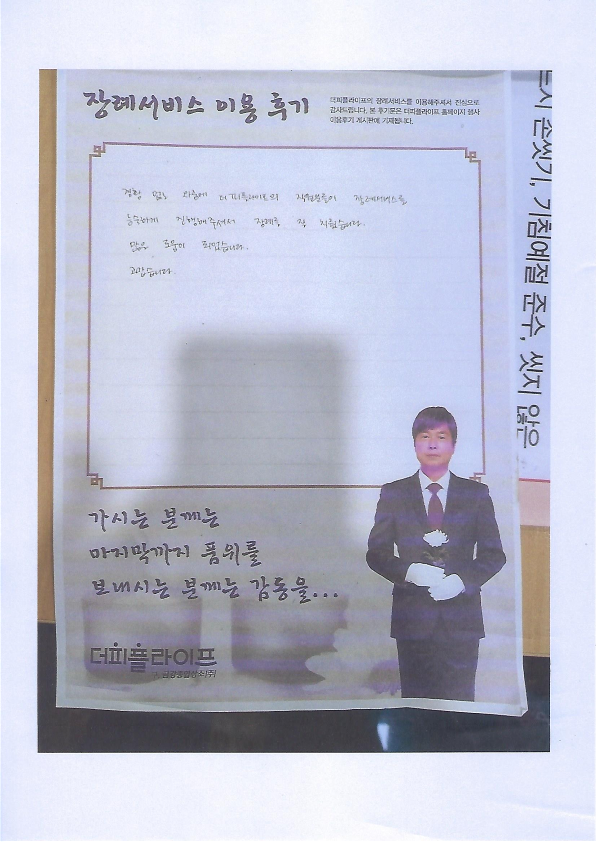 장례서비스 이용 후기
더피플라이프의 장례서비스를 이용해주셔서 진심으로
감사드립니다. 본 후기분은 더피플라이프 홈페이지 행사
이용후기 게시판에 기재됩니다.
경황 없는 와중에 더피플라이프의 직원분들이 장례서비스를
능숙하게 진행해주셔서 장례를 잘 치뤘습니다.
많은 도움이 되었습니다.
고맙습니다.
가시는 분께는
마지막까지 품위를
보내시는 분께는 감동을...
더피플라이프
손씻기, 기침예절 준수, 씻지 않은